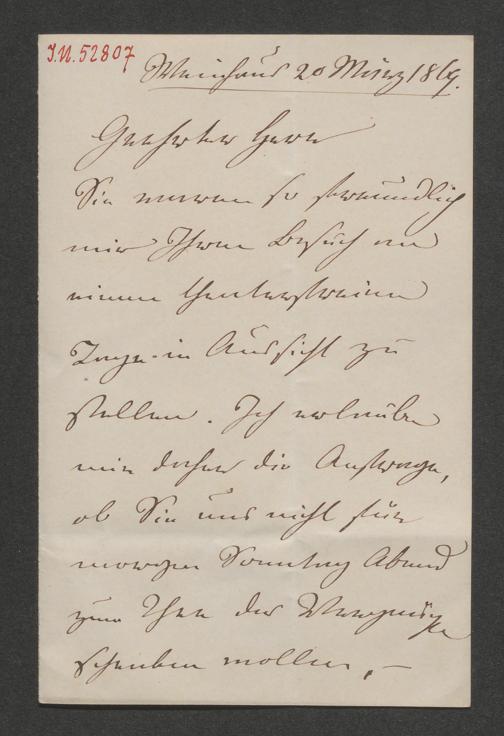 I.N. 52807
Weinhaus 20 März 1869.
Geehrter Herr
Sie waren so freundlich
mir Ihren Besuch an
einem theaterfreien
Tage in Aussicht zu
stellen. Ich erlaube
mir daher die Anfrage,
ob Sie uns nicht für
morgen Sonntag Abend
zum Thee das Vergnügen
schenken wollen, –